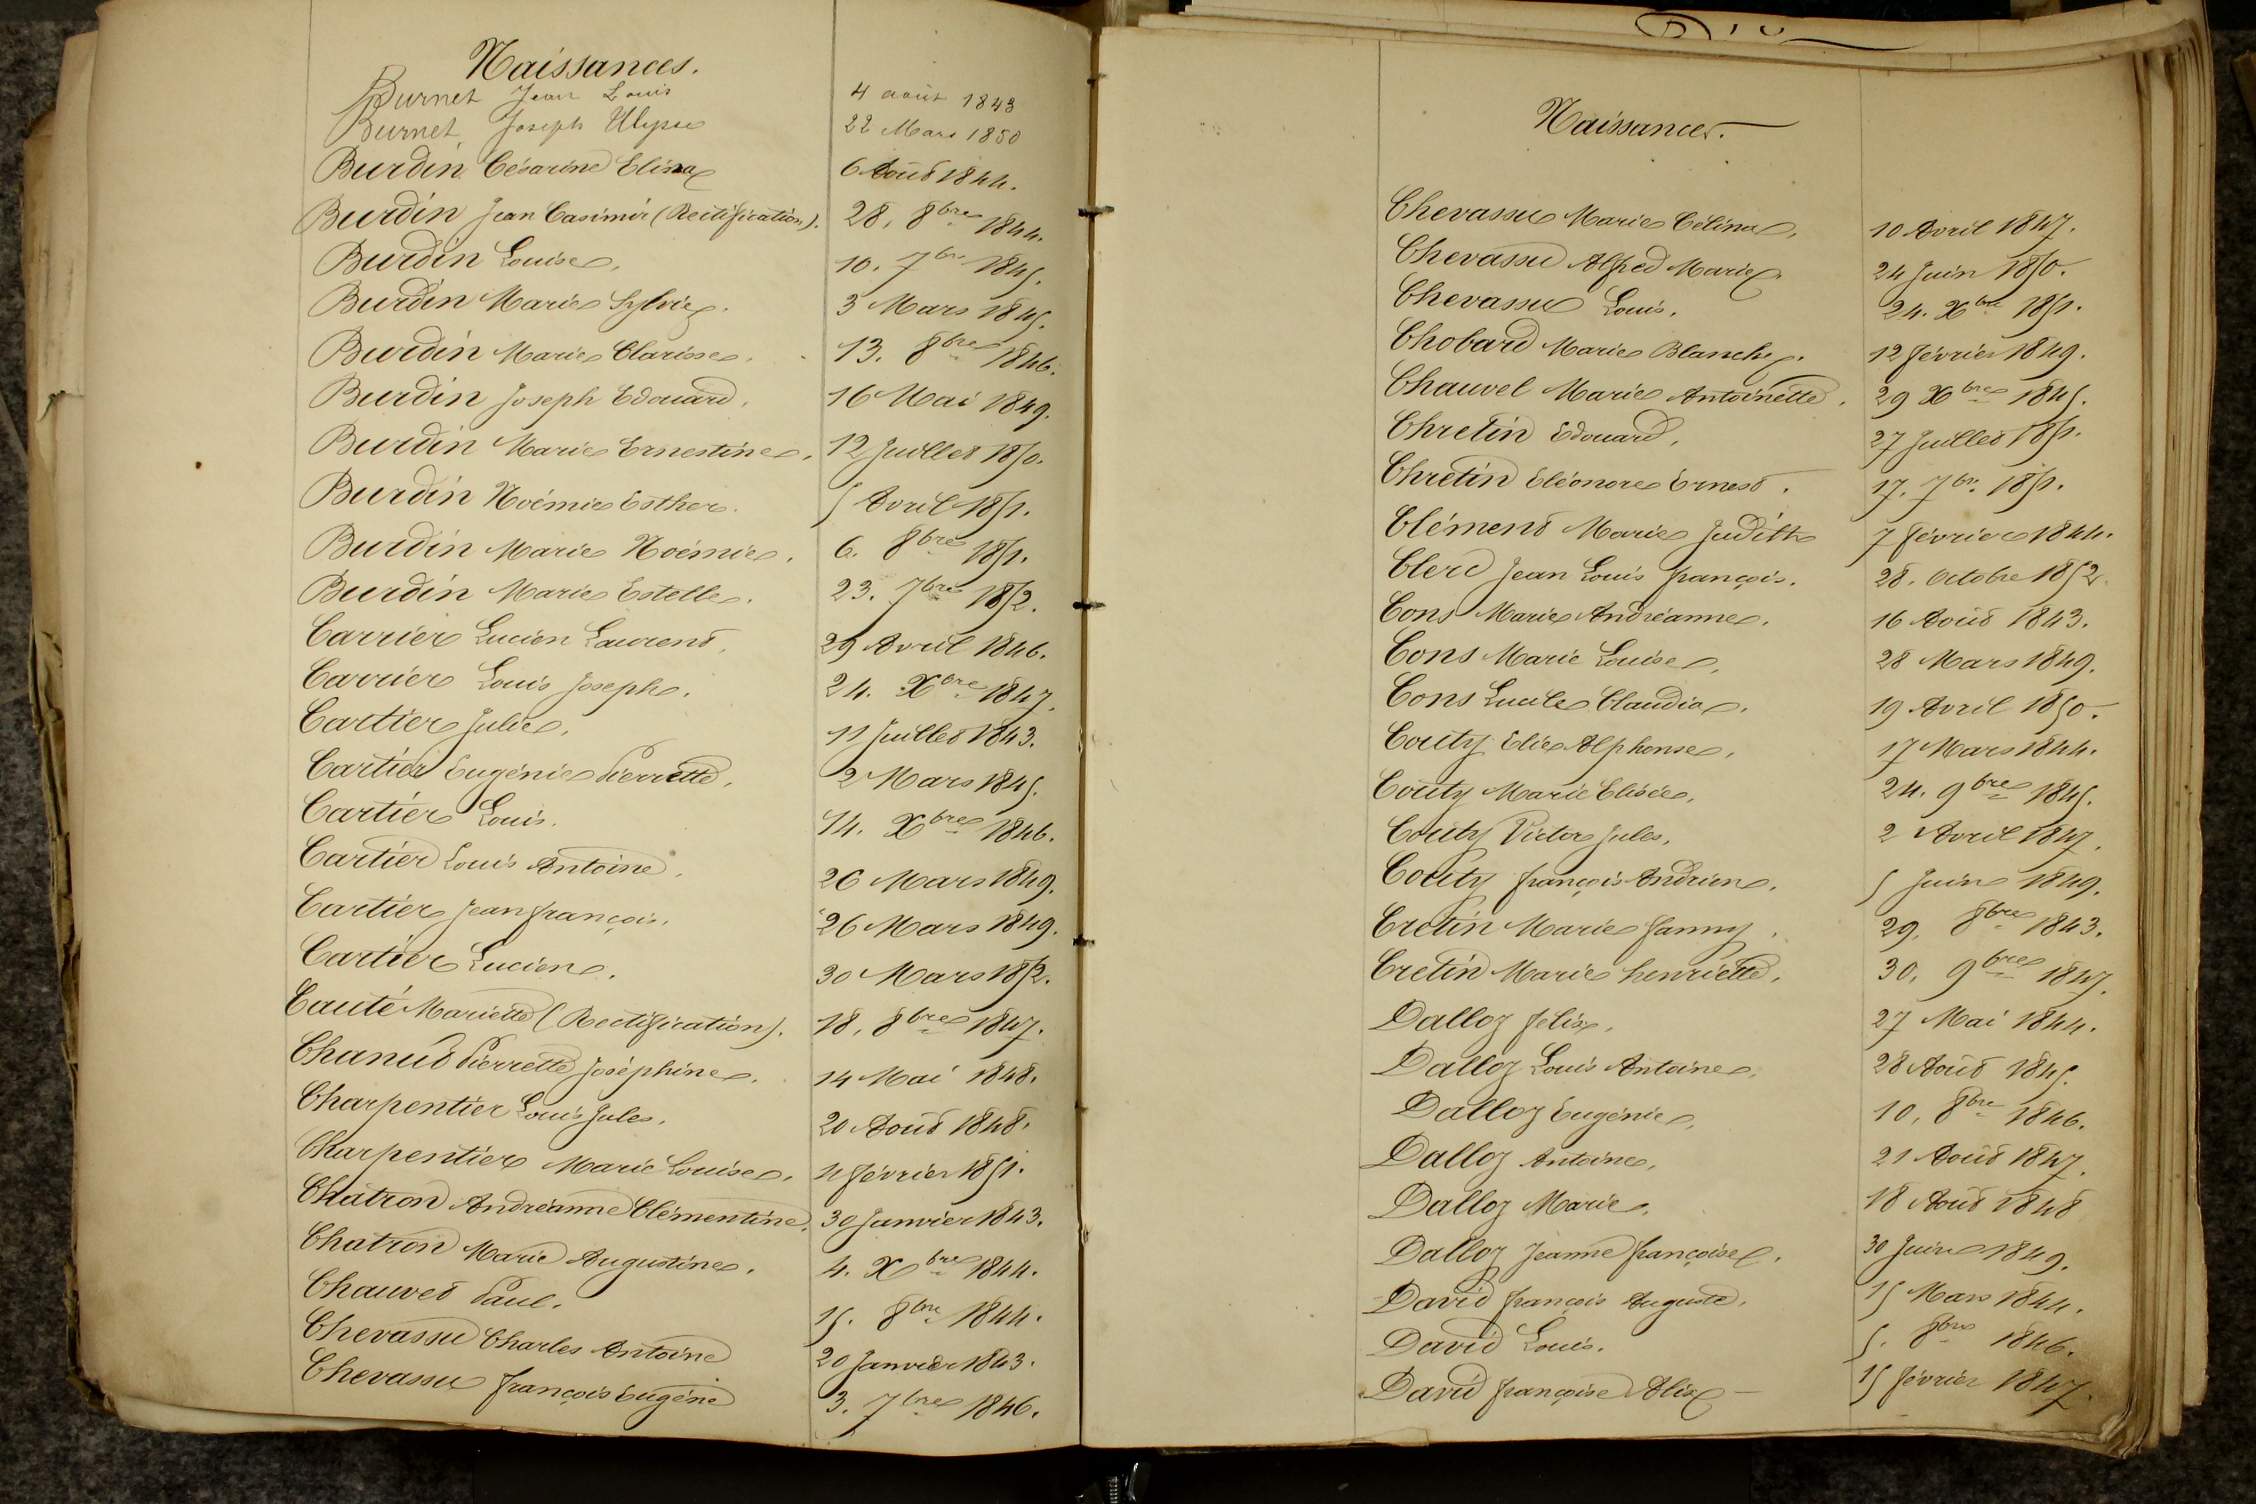 Naissances.
Burnet Jean Louis 4 août 1843
Burnet Joseph Ulysse 22 Mars 1850
Burdin Césarine Elina 6 Août 1844.
Burdin Jean Casimir (Rectification). 28. 8bre 1844.
Burdin Louise. 10. 7bre 1845.
Burdin Marie Sylvie. 3 Mars 1845.
Burdin Marie Clarisse. 13. 8bre 1846.
Burdin Joseph Edouard. 16 Mai 1849.
Burdin Marie Ernestine. 12 Juillet 1850.
Burdin Noémie Esther. 5 Avril 1851.
Burdin Marie Noémie. 6. 8bre 1851.
Burdin Marie Estelle. 23. 7bre 1852.
Carrier Lucien Laurent. 29 Avril 1846.
Carrier Louis Joseph. 24. Xbre 1847.
Cartier Julie. 11 Juillet 1843.
Cartier Eugénie Pierrette. 2 Mars 1845.
Cartier Louis. 14. Xbre 1846.
Cartier Louis Antoine. 26 Mars 1849.
Cartier Jean françois. 26 Mars 1849.
Cartier Lucien. 30 Mars 1852.
Cauté Mariette (Rectification). 18. 8bre 1847.
Chanut Pierrette Joséphine. 14 Mai 1848.
Charpentier Louis Jules. 20 Août 1848.
Charpentier Marie Louise. 4 février 1851.
Chatron Andréanne Clémentine. 30 Janvier 1843.
Chatron Marie Augustine. 4. Xbre 1844.
Chauvet Paul. 15. 8bre 1844.
Chevassu Charles Antoine 20 Janvier 1843.
Chevassu françois Eugène 3. 7bre 1846.
Naissances.
Chevassu Marie Célina. 10 Avril 1847.
Chevassu Alfred Marie. 24 Juin 1850.
Chevassu Louis. 24. Xbre 1851.
Chobard Marie Blanche. 12 février 1849.
Chauvel Marie Antoinette. 29 Xbre 1845.
Chretin Edouard. 27 Juillet 1851.
Chretin Eléonore Ernest. 17. 7bre 1851.
Clément Marie Judith 7 février 1844.
Clerc Jean Louis françois. 28. Octobre 1852.
Cons Marie Andréanne. 16 Août 1843.
Cons Marie Louise. 28 Mars 1849.
Cons Lucile Claudia. 19 Avril 1850.
Couty Elie Alphonse. 17 Mars 1844.
Couty Marie Elisée. 24. 9bre 1845.
Couty Victor Jules. 2 Avril 1847.
Couty françois Andrien. 5 Juin 1849.
Cretin Marie fanny. 29. 8bre 1843.
Cretin Marie henriette. 30. 9bre 1847.
Dalloz félix. 27 Mai 1844.
Dalloz Louis Antoine. 28 Août 1845.
Dalloz Eugénie. 10. 8bre 1846.
Dalloz Antoine. 21 Août 1847.
Dalloz Marie. 18 Août 1848
Dalloz Jeanne françoise. 30 Juin 1849.
David françois Auguste. 15 Mars 1844.
David Louis. 5. 8bre 1846.
David françoise Alix 15 février 1847.